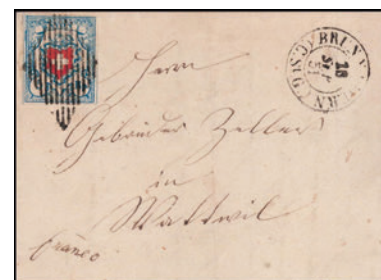 Herrn
Gebrüder Zeller
in
Wattwil
franco